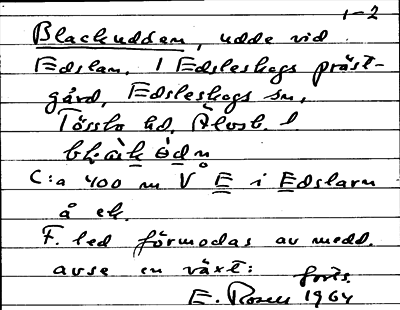 1-2
Blackudden, udde vid
Edslan, 1 Edsleskogs präst-
gård, Edsleskogs sn,
Tössbo hd, Älvsb. l
C:a 400 m V E i Edslarn
å ek.
F. led förmodas av medd.
avse en växt: forts.
E. Rosell 1964